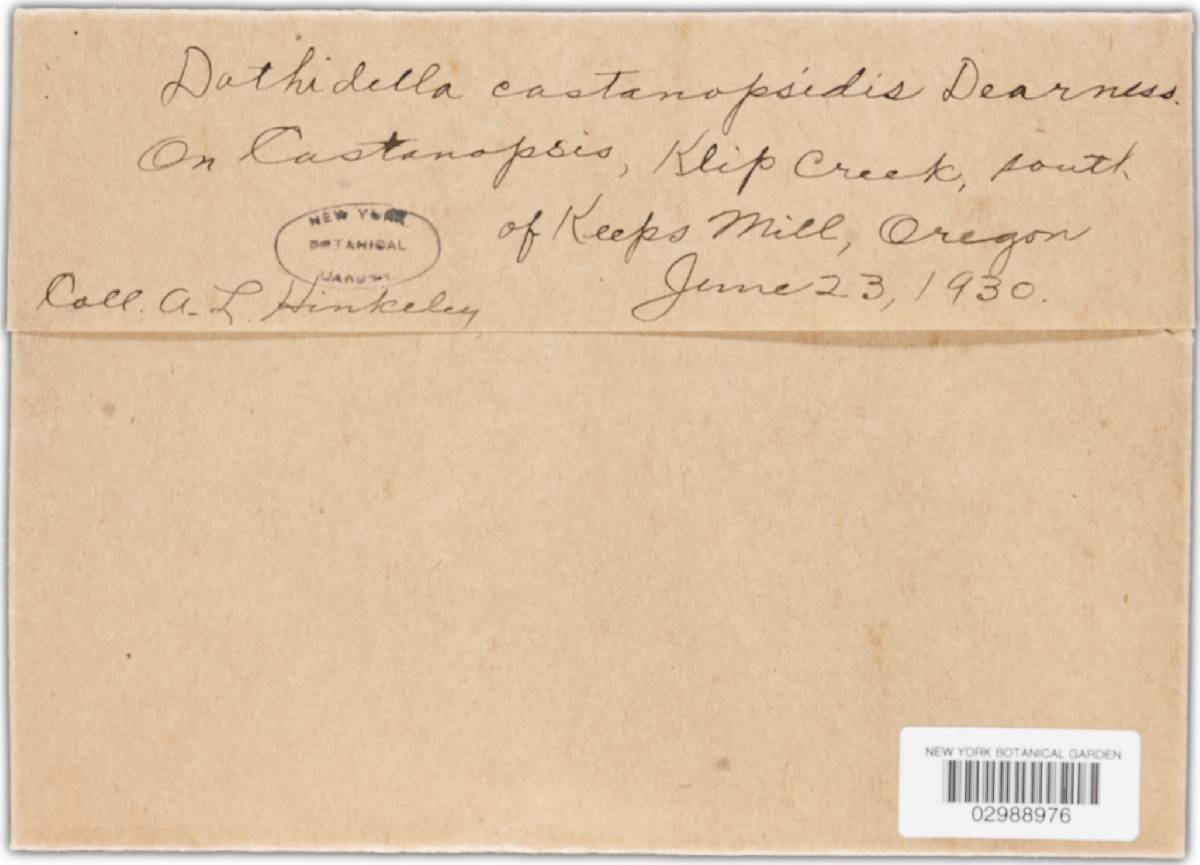 Dothidella castanopsidis Dearness.
On Castanopsis, Klip Creek, south
of Keeps Mill, Oregon
NEW YORK
BOTANICAL
GARDEN
Coll. A. L. Hinkeley
June 23, 1930.
NEW YORK BOTANICAL GARDEN
02988976